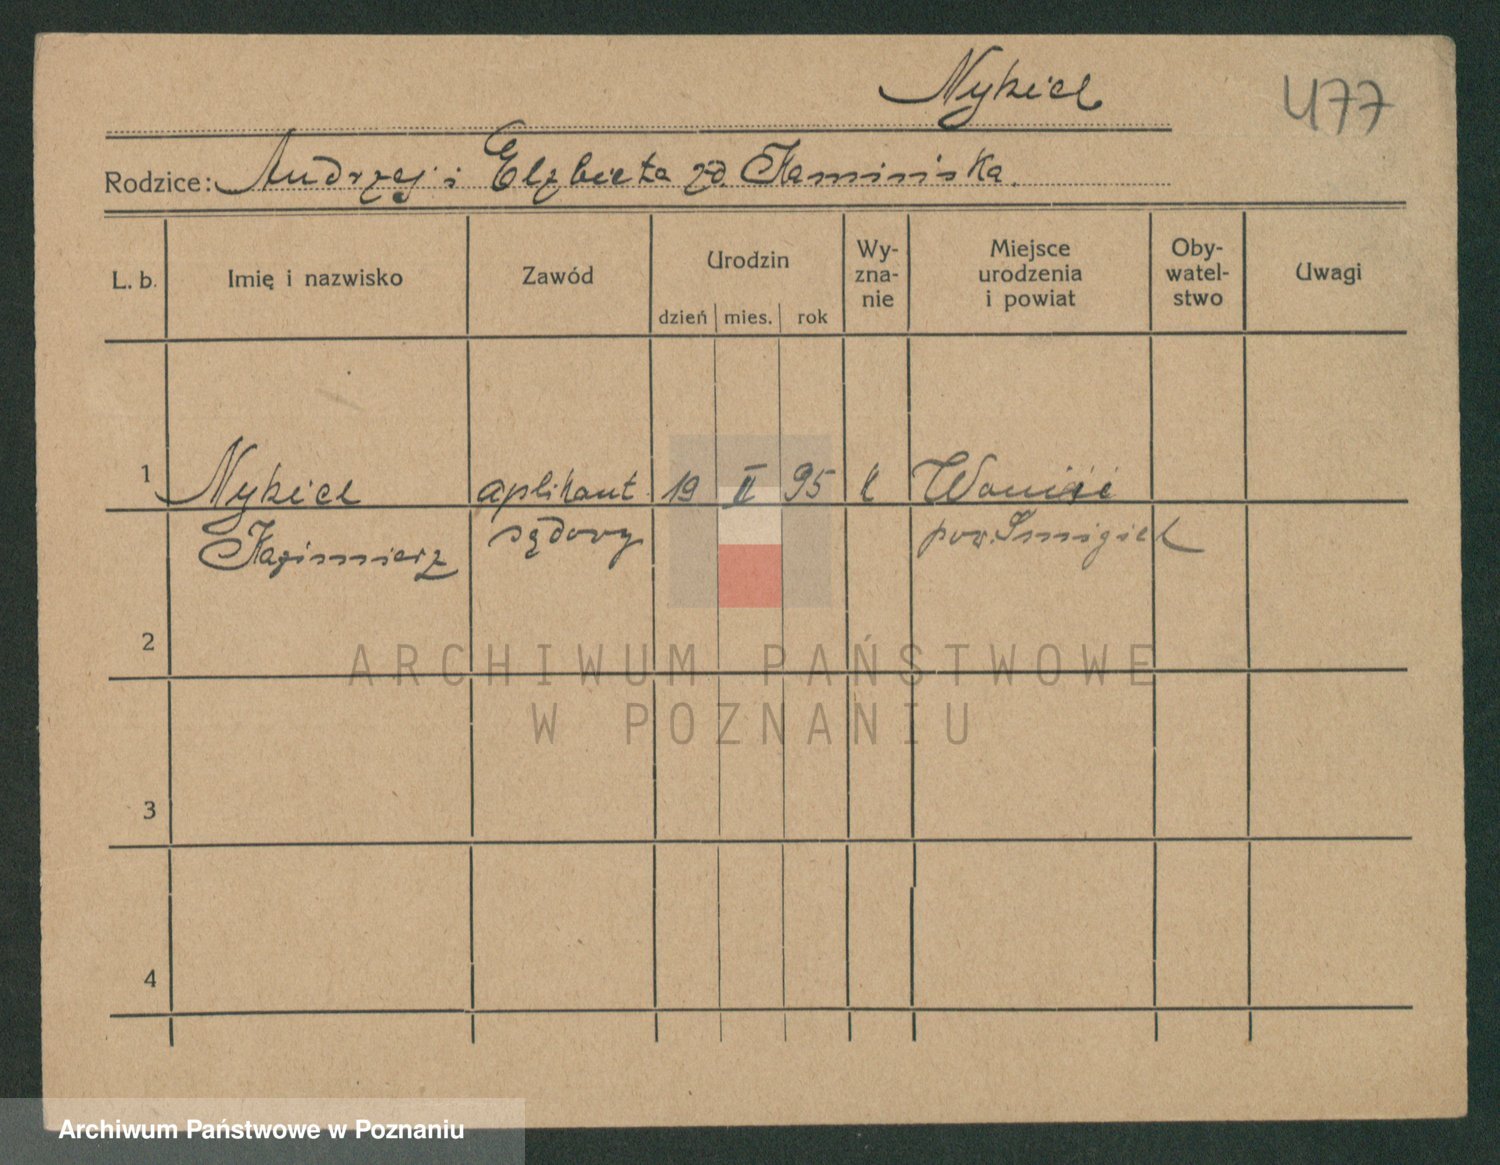 Nykiel
477
Rodzice: Andrzej i Elżbieta zd. Kamińska.
L. b.
Imię i nazwisko
Zawód
Urodzin
dzień mies. rok
Wy-
zna-
nie
Miejsce
urodzenia
i powiat
Oby-
watel-
stwo
Uwagi
1 Nykiel aplikant 19 II 95 k
Kazimierz sądowy pow. Śmigiel
2
3
4
ARCHIWUM PAŃSTWOWE
W POZNANIU
Archiwum Państwowe w Poznaniu